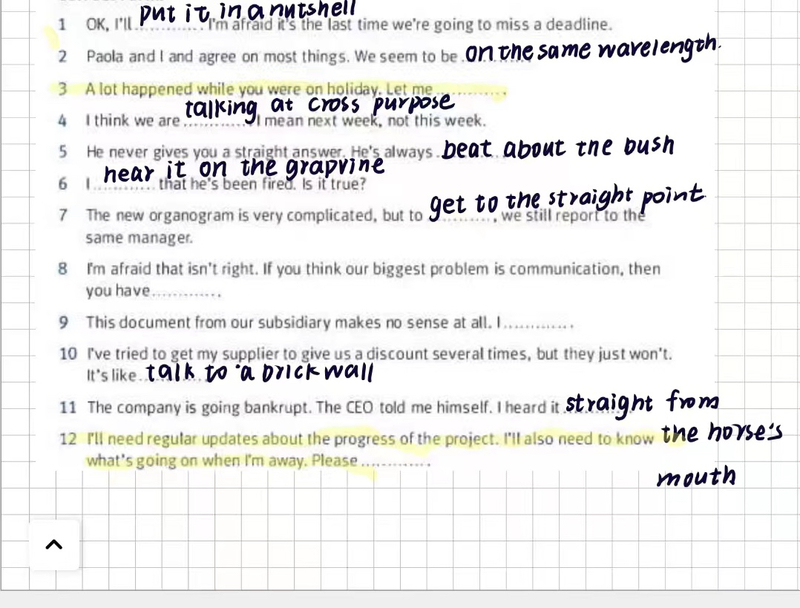 put it in a nutshell
1 OK, I'll ............. I'm afraid it's the last time we're going to miss a deadline.
2 Paola and I and agree on most things. We seem to be on the same wavelength.
3 A lot happened while you were on holiday. Let me ............
talking at cross purpose
4 I think we are ............ I mean next week, not this week.
5 He never gives you a straight answer. He's always beat about the bush
hear it on the grapvine
6 I ............ that he's been fired. Is it true?
7 The new organogram is very complicated, but to get to the straight point, we still report to the
same manager.
8 I'm afraid that isn't right. If you think our biggest problem is communication, then
you have ............
9 This document from our subsidiary makes no sense at all. I ............
10 I've tried to get my supplier to give us a discount several times, but they just won't.
It's like talk to a brick wall
11 The company is going bankrupt. The CEO told me himself. I heard it straight from
the horse's
mouth
12 I'll need regular updates about the progress of the project. I'll also need to know
what's going on when I'm away. Please ............